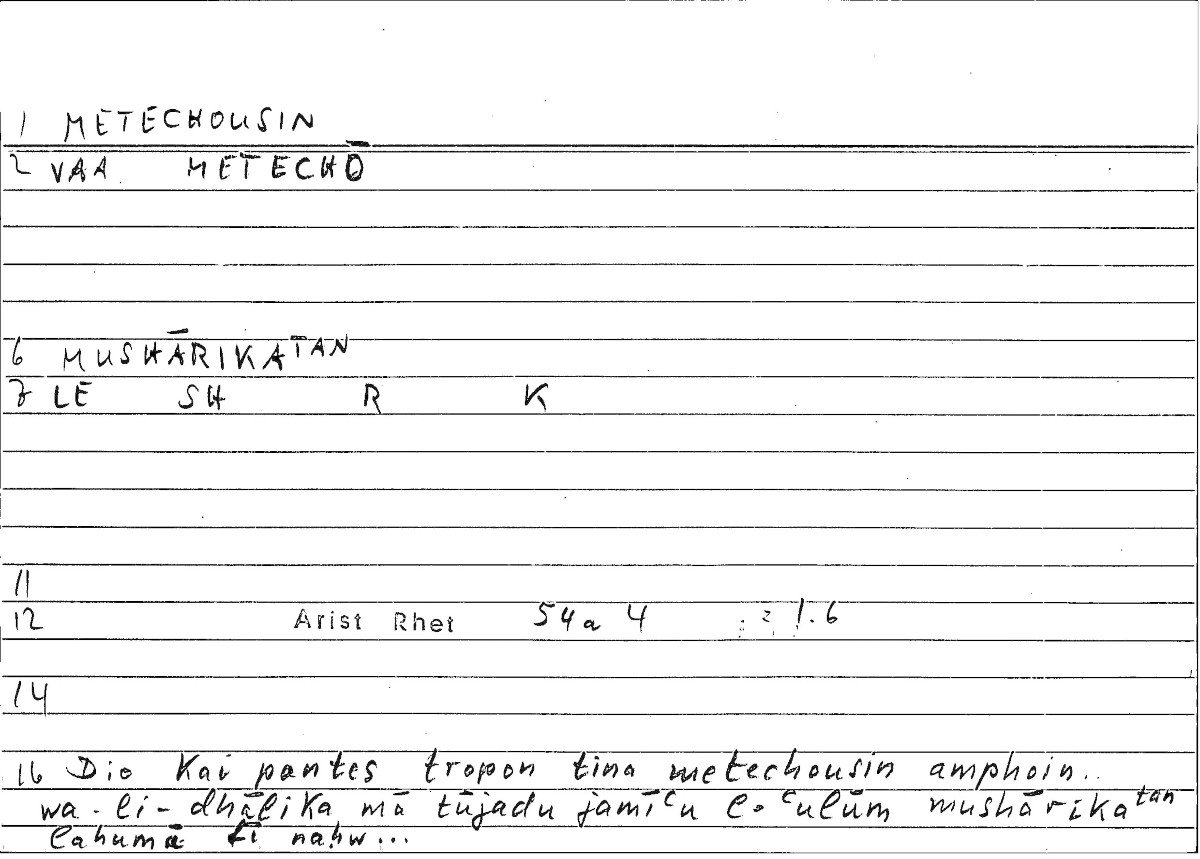 1 METECHOUSIN
2 VAA METECHŌ
6 MUSHĀRIKATAN
7 LE SH R K
11
12 Arist Rhet 54a 4 = 1.6
14
16 Dio kai pantes tropon tina metechousin amphoin..
wa-li-dhālika mā tūjadu jamīᶜu l-ᶜulūm mushārikatan
lahumā fī nahw...